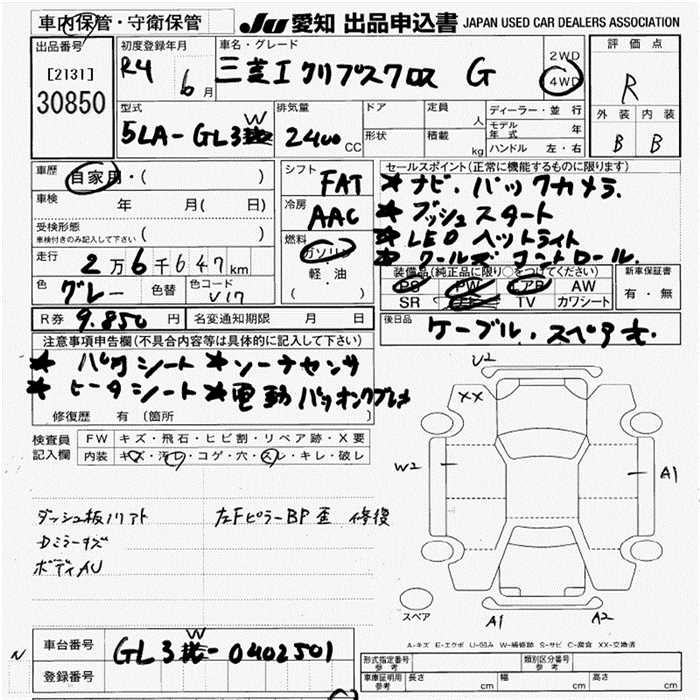 車内保管・守衛保管
JU 愛知 出品申込書 JAPAN USED CAR DEALERS ASSOCIATION
出品番号
[2131]
30850
初度登録年月
R4 6月
車名・グレード
三菱エクリプスクロス G
2WD
4WD
評価点
R
外装 内装
B B
型式
5LA-GL3W
排気量
2400 CC
ドア
形状
定員 人
積載 kg
ディーラー・並行
モデル年式 年
ハンドル 左・右
車歴 自家用・( )
車検 年 月( 日)
受検形態
車検付きのみ記入して下さい ( )
走行 2万6千647km
色 グレー 色替 色コード V17
シフト FAT
冷房 AAC
燃料 ガソリン
軽・油
( )
セールスポイント(正常に機能するものに限ります)
★ナビ・バックカメラ
★プッシュスタート
★LEDヘットライト
★クールズコントロール.
装備品(純正品に限り○をつけてください)
PS PW エアB AW
SR TV カワシート
新車保証書
有・無
R券 9.850円 名変通知期限 月 日
後日品 ケーブル.スペアキー
注意事項申告欄(不具合内容等は具体的に記入して下さい)
★ハカワシート ★ソーナセンサ
★ヒータシート ★電動パーキングブレーキ
修復歴 有 (箇所 )
検査員記入欄
FW キズ・飛石・ヒビ割・リペア跡・X要
内装 キズ・汚レ・コゲ・穴・スレ・キレ・破レ
ダッシュ板ノリアト 左FピラーBP歪 修復
Dミラーキズ
ボディAU
U2
XX
W2
A1
スペア
A1
A2
A-キズ E-エクボ U-凹み W-補修跡 S-サビ C-腐食 XX-交換済
車台番号 GL3W-0402501
登録番号
N
形式指定番号 参考
類別区分番号 参考
車庫証明用 参考 長さ cm 幅 cm 高さ cm